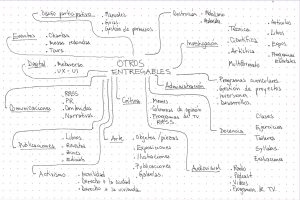 Diseño participativo
Paneles
Giras
Gestión de permisos
Curatorium
Mobiliario
Investigación
Técnica
Científica
Artística
Multiformato
Artículos
Libros
Expos
Programas
Eventos
Charlas
Mesas redondas
Tours
Digital
Metaverso
UX - UI
OTROS
ENTREGABLES
Administración
Programas curriculares
Gestión de proyectos
Inversión
Desarrollos
Comunicaciones
RRSS
PR
Contenidos
Narrativas
Cultura
Memes
Columnas de opinión
Programas de TV
RRSS
Docencia
Clases
Ejercicios
Talleres
Syllabus
Evaluaciones
Publicaciones
Libros
Revistas
Prints
Arte
Objetos / piezas
Exposiciones
Ilustraciones
Publicaciones
Galerías
Audiovisual
Radio
Podcast
Videos
Programas de TV
Activismo
Movilidad
Derecho a la ciudad
Derecho a la vivienda